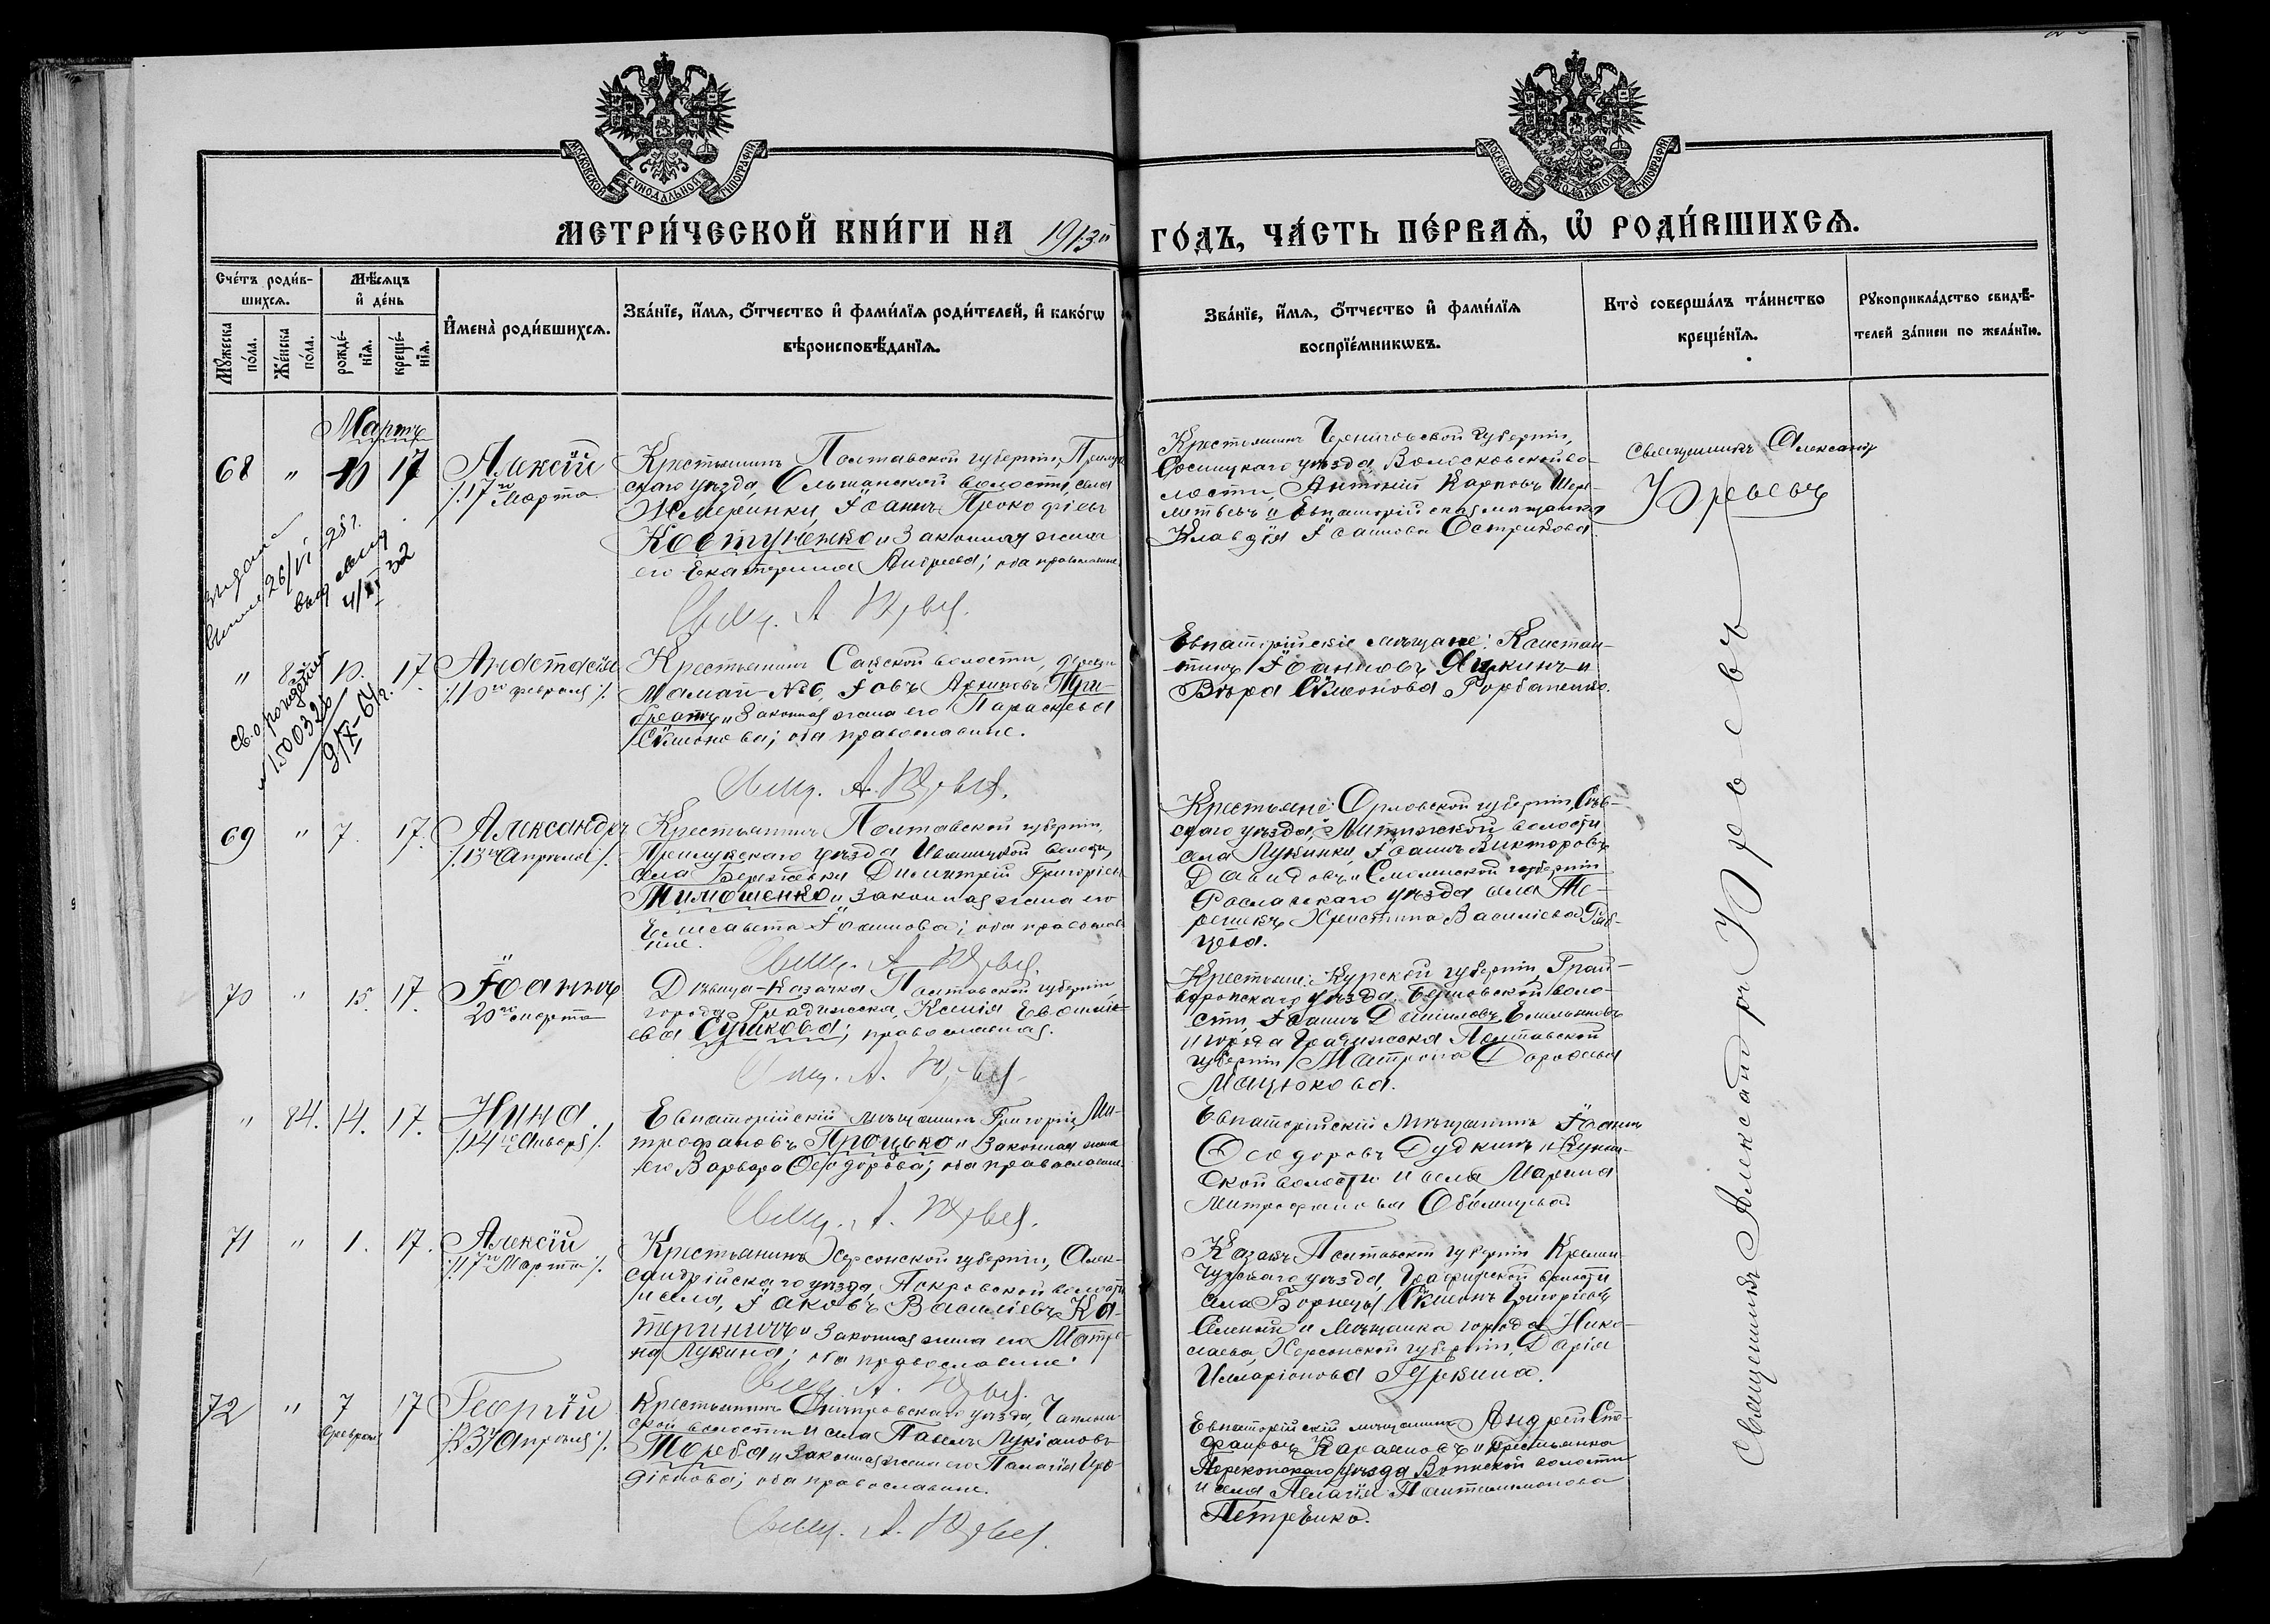 МОСКОВСКОЙ СѴНОДАЛЬНОЙ ТИПОГРАФІИ
МОСКОВСКОЙ СѴНОДАЛЬНОЙ ТИПОГРАФІИ
МЕТРИ́ЧЕСКОЙ КНИ́ГИ НА 1913й ГО́ДЪ, ЧА́СТЬ ПЕ́РВАѦ, Ѡ҆ РОДИ́ВШИХСѦ.
Сче́тъ роди́в-
шихсѧ.
Мꙋ́жеска по́ла.
Же́нска по́ла.
Мѣ́сѧцъ
и҆ де́нь
рожде́-нїѧ.
креще́-нїѧ.
И҆мена̀ роди́вшихсѧ.
Зва́нїе, и҆́мѧ, ѻ҆́тчество и҆ фами́лїѧ роди́телей, и҆ како́гѡ
вѣроисповѣ́данїѧ.
Зва́нїе, и҆́мѧ, ѻ҆́тчество и҆ фами́лїѧ
воспрїе́мникѡвъ.
Кто̀ соверша́лъ та́инство
креще́нїѧ.
Рꙋкоприкла́дство свидѣ́-
телей за́писи по жела́нїю.
Мартъ
68 " 10 17 Алексій
/:17го Марта
Крестьянинъ Полтавской губерніи, Прилук
скаго уѣзда, Ольшанской волости, села
Жмеринки, Іоаннъ Прокофіевъ
Костуненко и законная жена
его Екатерина Андреева; оба православные
Свящ. А. Юрьев.
Крестьянинъ Черниговской губерніи,
Сосницкаго уѣзда, Волосковской во-
лости, Антоній Карповъ Шере-
метьевъ и Евпаторійская мѣщанка
Клавдія Іоаннова Острикова.
Священникъ Александръ
Юрьевъ
26/VI 25 г.
4/XI 32
" 83 10. 17. Анастасія
/:10го февраля:/.
Св. о рождении
№ 150032б
9/X-64 г.
Крестьянинъ Сакской волости, деревни
Мамай №6, Іовъ Архиповъ При-
братъ и законная жена его Параскева
Сѵмонова; оба православные.
Свящ. А. Юрьев.
Евпаторійскіе мѣщане: Констан-
тинъ Іоанновъ Яцкинъ и
Вѣра Сѵмонова Горбаненко.
69 " 7. 17. Александръ
/:13го Апрѣля:/.
Крестьянинъ Полтавской губерніи,
Прилукскаго уѣзда Иваницкой волости,
села Бережовки Димитрій Григоріевъ
Тимошенко и законная жена его
Елисавета Іоаннова; оба православ
ные.
Свящ. А. Юрьев.
Крестьяне: Орловской губерніи, Сѣв-
скаго уѣзда, Литижской волости
села Лукинки, Іоаннъ Викторовъ
Давидовъ и Смоленской губерніи
Рославскаго уѣзда села Те-
решекъ Христина Василіева
цева.
70 " 15 17. Іоаннъ
20го марта
Дѣвица-казачка Полтавской губерніи
города Градижска, Ксенія Евфимі-
ева Сушкова; православная.
Свящ. А. Юрьев.
Крестьяне: Курской губерніи, Грай-
воронскаго уѣзда, волос-
сти, Іоаннъ Даніиловъ Емельяновъ
и города Градижска Полтавской
губерніи Матрона Дорофеева
Мацюкова.
" 84. 14. 17. Нина.
/:14го Января:/.
Евпаторійскій мѣщанинъ Григорій Ми-
трофановъ Процько и законная жена
его Варвара Ѳеодорова; оба православные.
Свящ. А. Юрьев.
Евпаторійскій мѣщанинъ Іоаннъ
Ѳеодоровъ Дудкинъ и
ской волости и села Марина
Митрофанова
71 " 1. 17. Алексій
/:17го Марта:/.
Крестьянинъ Херсонской губерніи, Алек-
сандрійскаго уѣзда, Покровской волости
и села, Іаковъ Василіевъ Ка-
териничъ и законная жена его Матро-
на Лукина; оба православные.
Свящ. А. Юрьев.
Казакъ Полтавской губерніи Кремен-
чугскаго уѣзда, волости
села Сѵмонъ Григоріевъ
и мѣщанка города Нико-
лаева, Херсонской губерніи, Дарія
Илларіонова Гуркина.
72 " 7 17 Георгій
Февраля
/:23го Апрѣля:/.
Крестьянинъ Днѣпровскаго уѣзда, Чаплин-
ской волости и села Павелъ Лукіановъ
Тореба и законная жена его Палагія Иро-
діонова; оба православные.
Свящ. А. Юрьев.
Евпаторійскій мѣщанинъ Андрей Сте-
фановъ и крестьянка
Перекопскаго уѣзда Воинской волости
и села Пелагія Пантелимонова
Петренко.
Священникъ Александръ Юрьевъ